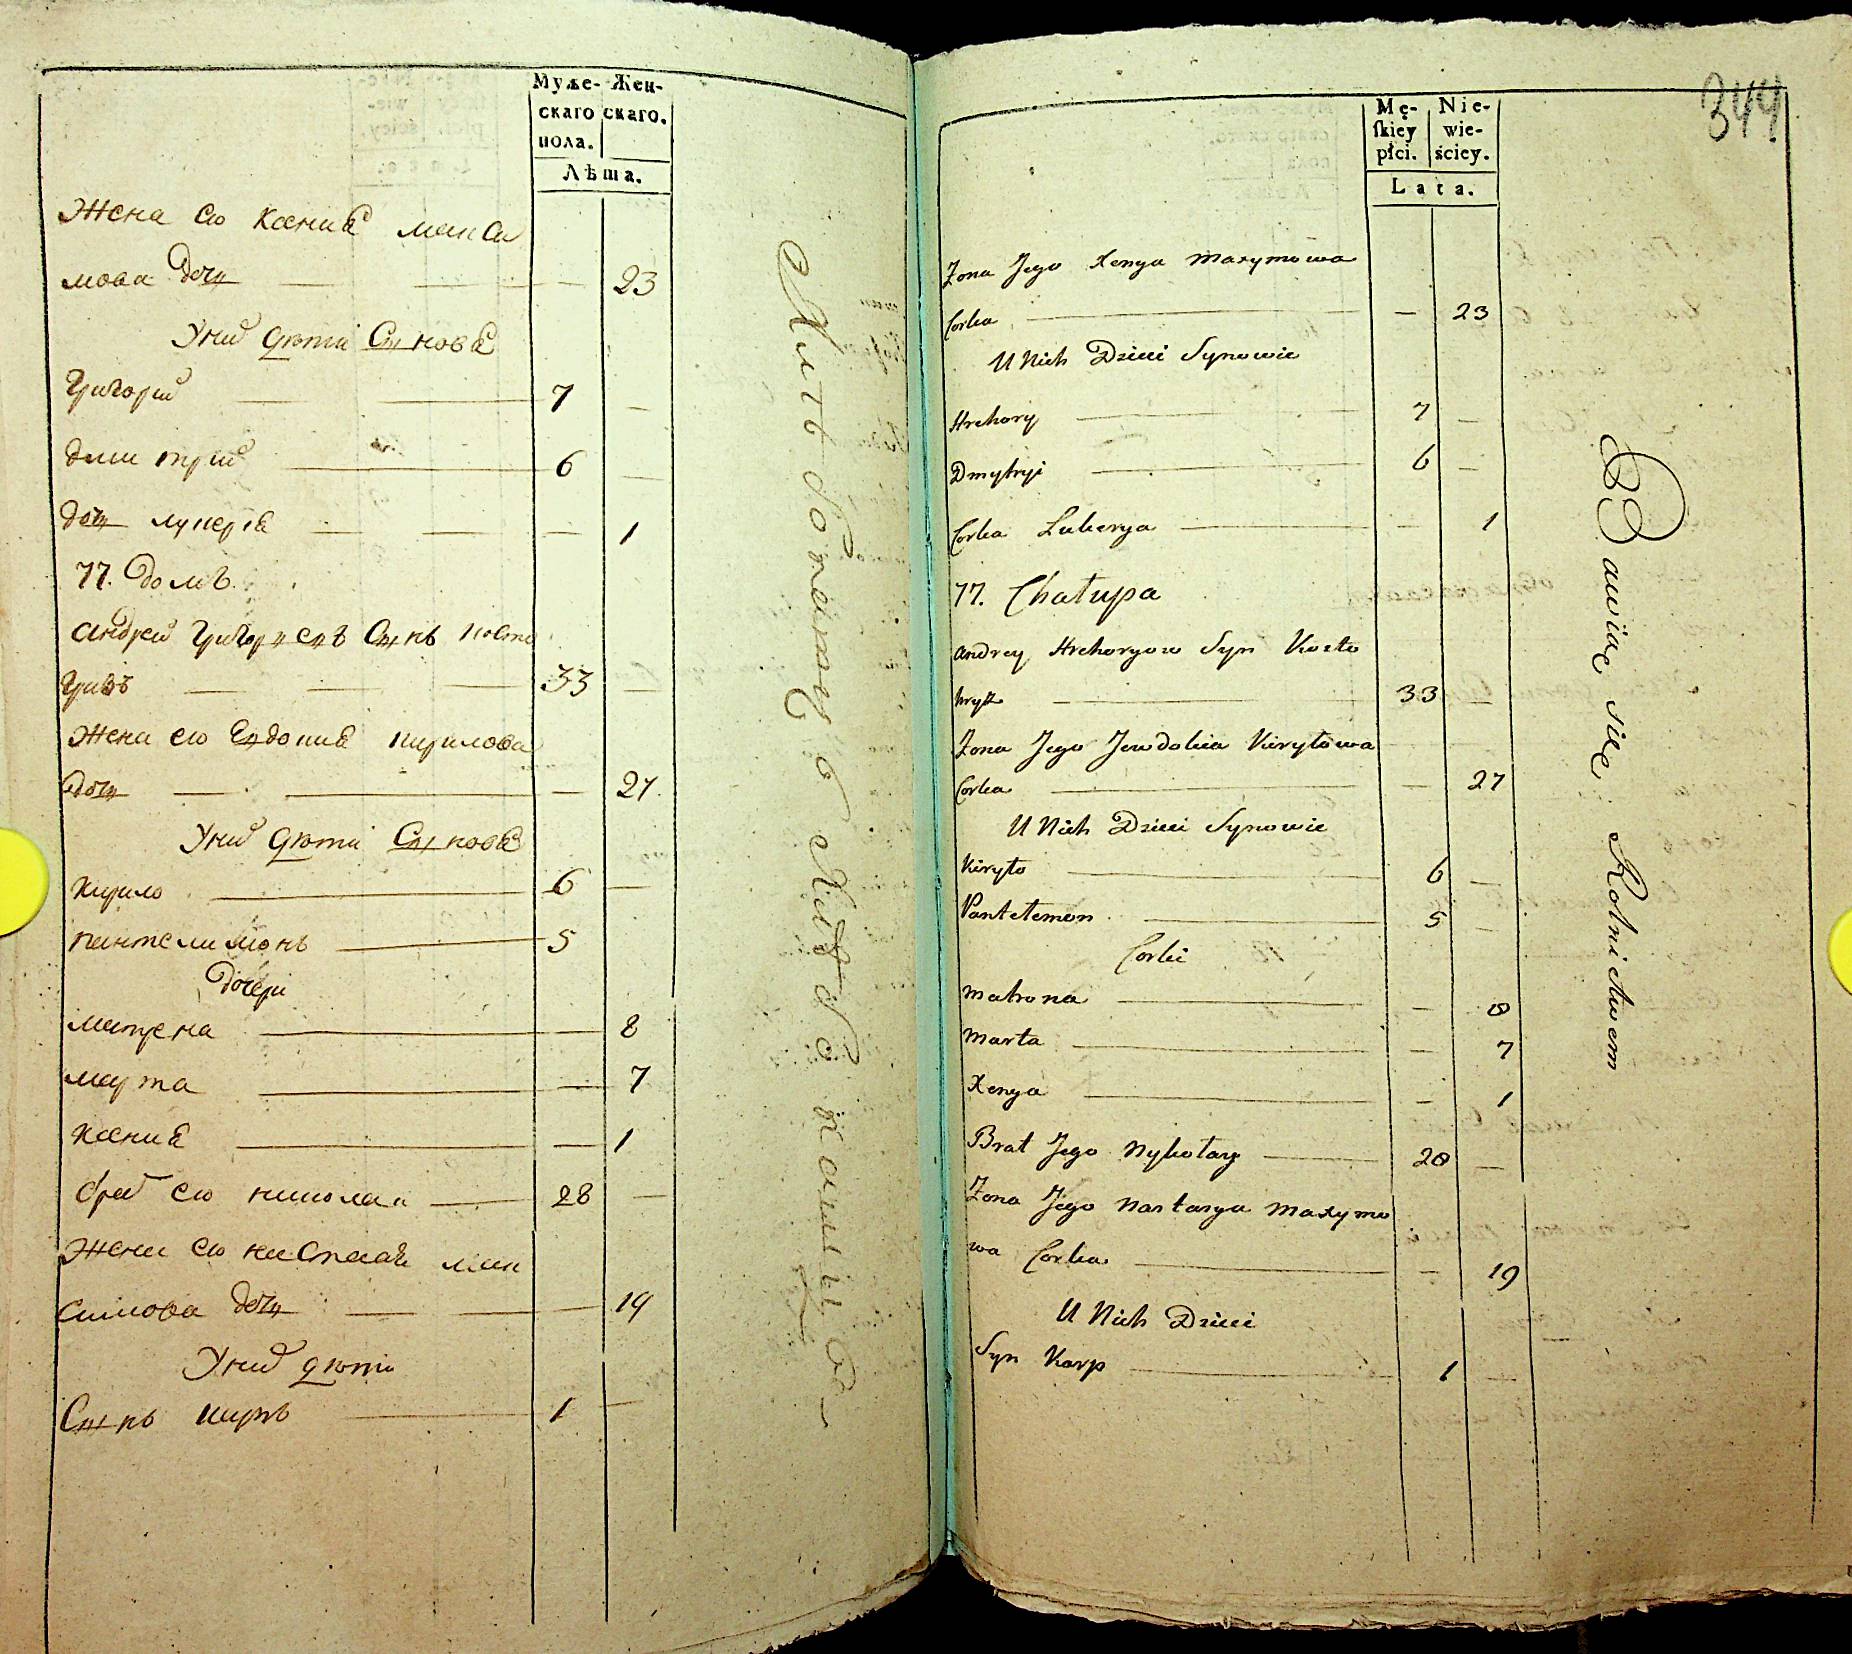 Муже-
скаго
пола.
Жен-
скаго.
Лѣта.
Жена его Ксения Макси
мова дочь — 23
У них дѣти Сыновя
Григорий — 7 —
Дмитрий — 6 —
дочь лукерія — 1
77. Домъ.
Андрей Григорьевъ Сынъ Косто
гризъ — 33 —
Жена его Евдокия Кирилова
дочь — 27
У них дѣти Сыновя
Кирило — 6 —
Пантелимонъ — 5
Дочери
Матрена — 8
Марта — 7
Ксения — 1
брат его николай — 28 —
Жена его настасия Мак
симова дочь — 19
У них дѣти
Сынъ Карпъ — 1 —
344
Mę-
skiey
płci.
Nie-
wie-
ściey.
Lata.
Zona Jego Xenya Maxymowa
Corka — 23
U Nich Dzieci Synowie
Hrehory — 7 —
Dmytryi — 6 —
Corka Lukerya — 1
77. Chałupa
Andrey Hrehoryow Syn Kosto
hryz — 33 —
Zona Jego Jewdokia Kiryłowa
Corka — 27
U Nich Dzieci Synowie
Kiryło — 6 —
Pantełemon — 5 —
Corki
Matrona — 8
Marta — 7
Xenya — 1
Brat Jego Nykołay — 28 —
Zona Jego Nastasya Maxymo
wa Corka — 19
U Nich Dzieci
Syn Karp — 1 —
Bawiąc się Rolnictwem